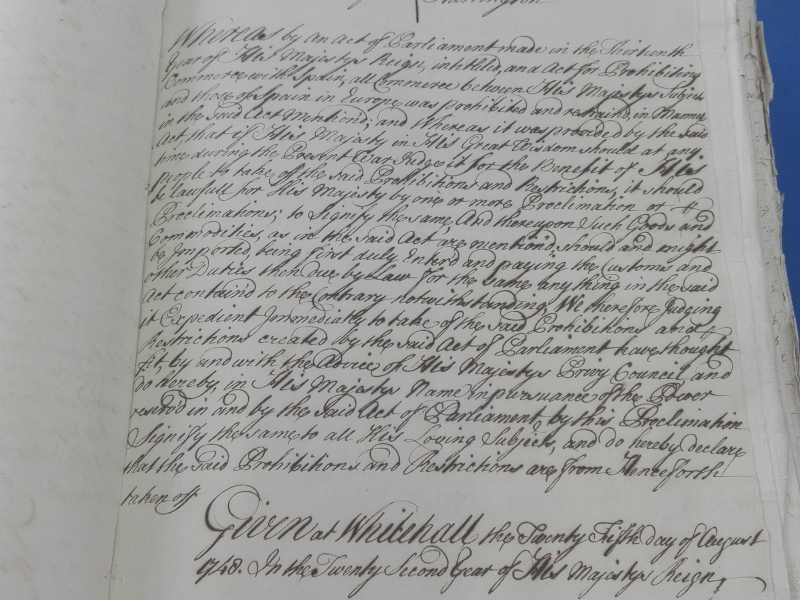 Harrington
Whereas by an Act of Parliament made in the Thirteenth
Year of His Majestys Reign, intitled, and Act for Prohibiting
Commerce with Spain, all Commerce between His Majestys Subjects
and those of Spain in Europe was prohibited and restraind, in Manner
in the said Act mention'd; and Whereas it was provided by the said
Act that if His Majesty in His Great Wisdom should at any
time during the Present War Judge it for the Benefit of His
People to take off the said Prohibitions and Restrictions, it should
be lawfull for His Majesty by one or more Proclamation or
Proclamations, to Signify the same, And thereupon Such Goods and
Commodities, as in the said Act are mention'd, should and might
be Imported, being first duly Enterd and paying the Customs and
other Duties then due by Law for the same any thing in the said
Act contain'd to the Contrary notwithstanding. We therefore Judging
it Expedient Immediately to take off the said Prohibitions and
Restrictions created by the said Act of Parliament have thought
fit, by and with the Advice of His Majestys Privy Council, and
do hereby, in His Majestys Name in pursuance of the Power
reserv'd in and by the said Act of Parliament, by this Proclamation
Signify the same to all His Loving Subjects, and do hereby declare
that the said Prohibitions and Restrictions are from Henceforth
taken off.
Given at Whitehall the Twenty Fifth day of August
1748. In the Twenty Second Year of His Majestys Reign,